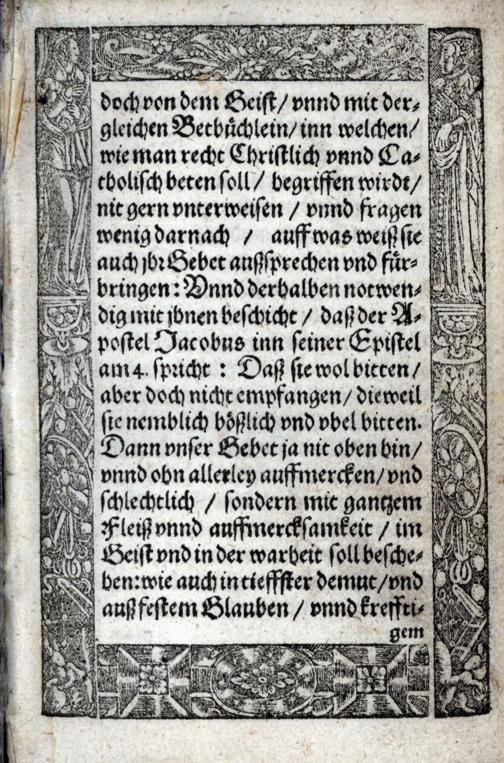 doch von dem Geist/ vnnd mit der-
gleichen Betbüchlein/ inn welchen/
wie man recht Christlich vnnd Ca-
tholisch beten soll/ begriffen wirdt/
nit gern vnterweisen / vnnd fragen
wenig darnach / auff was weiß sie
auch jhr Gebet außsprechen vnd für-
bringen: Vnnd derhalben notwen-
dig mit jhnen beschicht/ daß der A-
postel Jacobus inn seiner Epistel
am 4. spricht : Daß sie wol bitten/
aber doch nicht empfangen/ dieweil
sie nemblich bößlich vnd vbel bitten.
Dann vnser Gebet ja nit oben hin/
vnnd ohn allerley auffmercken/ vnd
schlechtlich / sondern mit gantzem
Fleiß vnnd auffmercksamkeit / im
Geist vnd in der warheit soll besche-
hen: wie auch in tieffster demut/ vnd
auß festem Glauben / vnnd kreffti-
gem